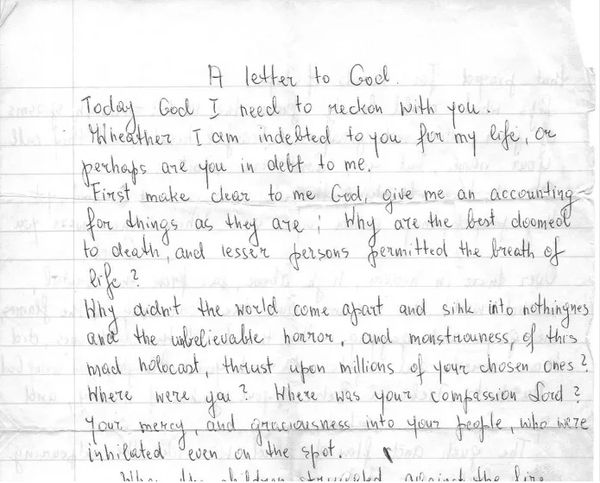 A letter to God.
Today God I need to reckon with you.
Wheather I am indebted to you for my life, or
perhaps are you in debt to me.
First make clear to me God, give me an accounting
for things as they are; Why are the best doomed
to death, and lesser persons permitted the breath of
life?
Why didn't the world come apart and sink into nothingnes
and the unbelievable horror, and monstrouness, of this
mad holocast, thrust upon millions of your chosen ones?
Where were you? Where was your compassion Lord?
Your mercy, and graciousness into your people, who were
inhilated even on the spot.
the children against the fire